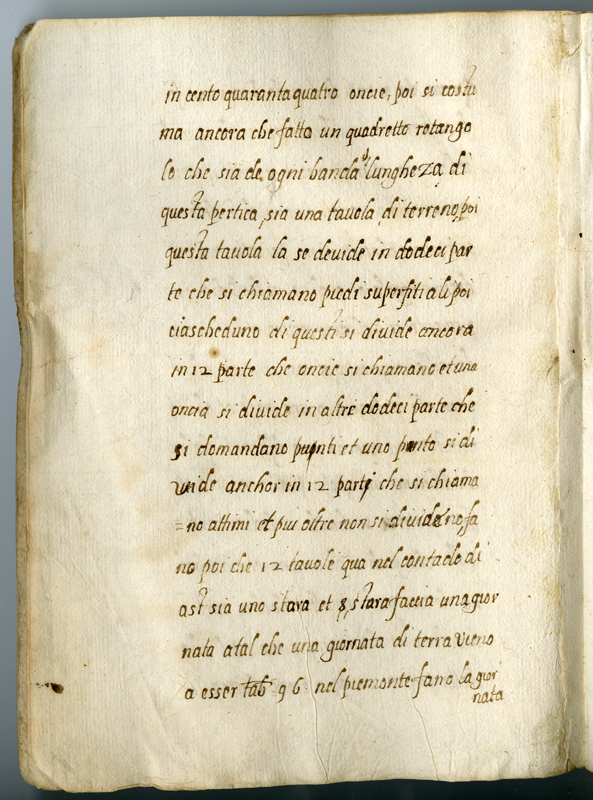 in cento quaranta quatro oncie, poi si costu
ma ancora che fatto un quadretto retango
lo che sia de ogni banda d lungheza di
questa pertica, sia una tavola di terreno, poi
questa tavola la se devide in dodeci par
te che si chiamano piedi superfitiali poi
ciascheduno di questi si divide ancora
in 12 parte che oncie si chiamano et una
oncia si divide in altre dodeci parte che
si domandano punti et uno punto si di
vide anchor in 12 parti che si chiama
=no attimi et piu oltre non si divideno, fa
no poi che 12 tavole qua nel contado di
ast sia uno stara et 8, stara faccia una gior
nata a tal che una giornata di terra vieno
a esser tab 96 nel piemonte fano la gior
nata